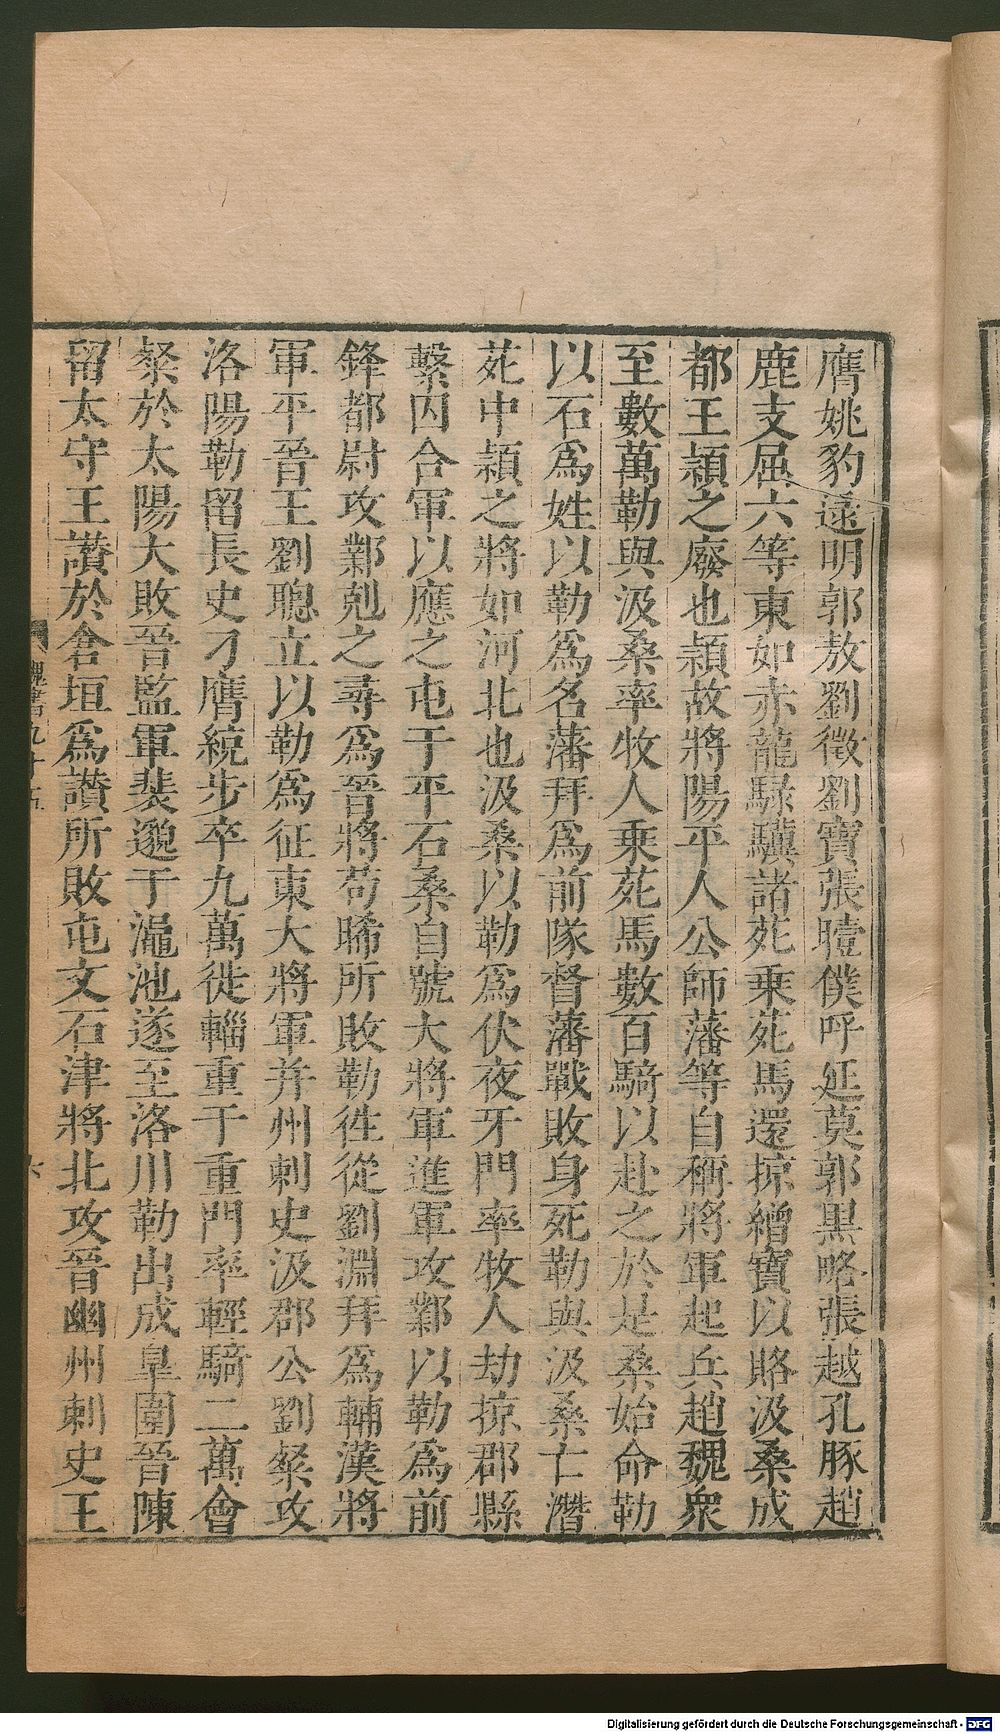 膺姚豹逯明郭敖劉徵劉寶張曀僕呼延莫郭黒略張越孔豚趙
鹿支屈六等東如赤龍騄驥諸苑乗苑馬還掠繒寶以賂汲桑成
都王頴之廢也頴故將陽平人公師藩等自稱將軍起兵趙魏衆
至數萬勒與汲桑率牧人乗苑馬數百騎以赴之於是桑始命勒
以石爲姓以勒爲名藩拜爲前隊督藩戰敗身死勒與汲桑亡潛
苑中頴之將如河北也汲桑以勒爲伏夜牙門率牧人劫掠郡縣
繫囚合軍以應之屯于平石桑自號大將軍進軍攻鄴以勒爲前
鋒都尉攻鄴剋之尋爲晉將苟晞所敗勒徃從劉淵拜爲輔漢將
軍平晉王劉聰立以勒爲征東大將軍并州刺史汲郡公劉粲攻
洛陽勒留長史刁膺統步卒九萬徙輜重于重門率輕騎二萬會
粲於太陽大敗晉監軍裴邈于澠池遂至洛川勒出成皐圍晉陳
留太守王讃於倉垣爲讃所敗屯文石津將北攻晉幽州刺史王
魏書九十五
六
Digitalisierung gefördert durch die Deutsche Forschungsgemeinschaft - DFG